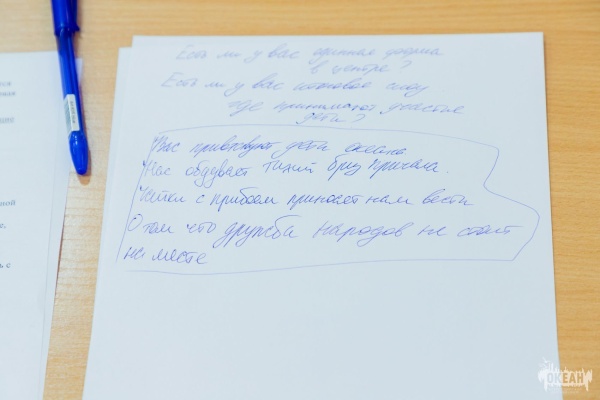 Есть ли у вас единая форма
в центре?
Есть ли у вас шоу
где принимают участие
дети?
Вас приветствуют дети океана
Нас обдувает тихий бриз причала.
с прибоем приносает нам вести
О том что дружба народов не стоит
на месте
ОКЕАН